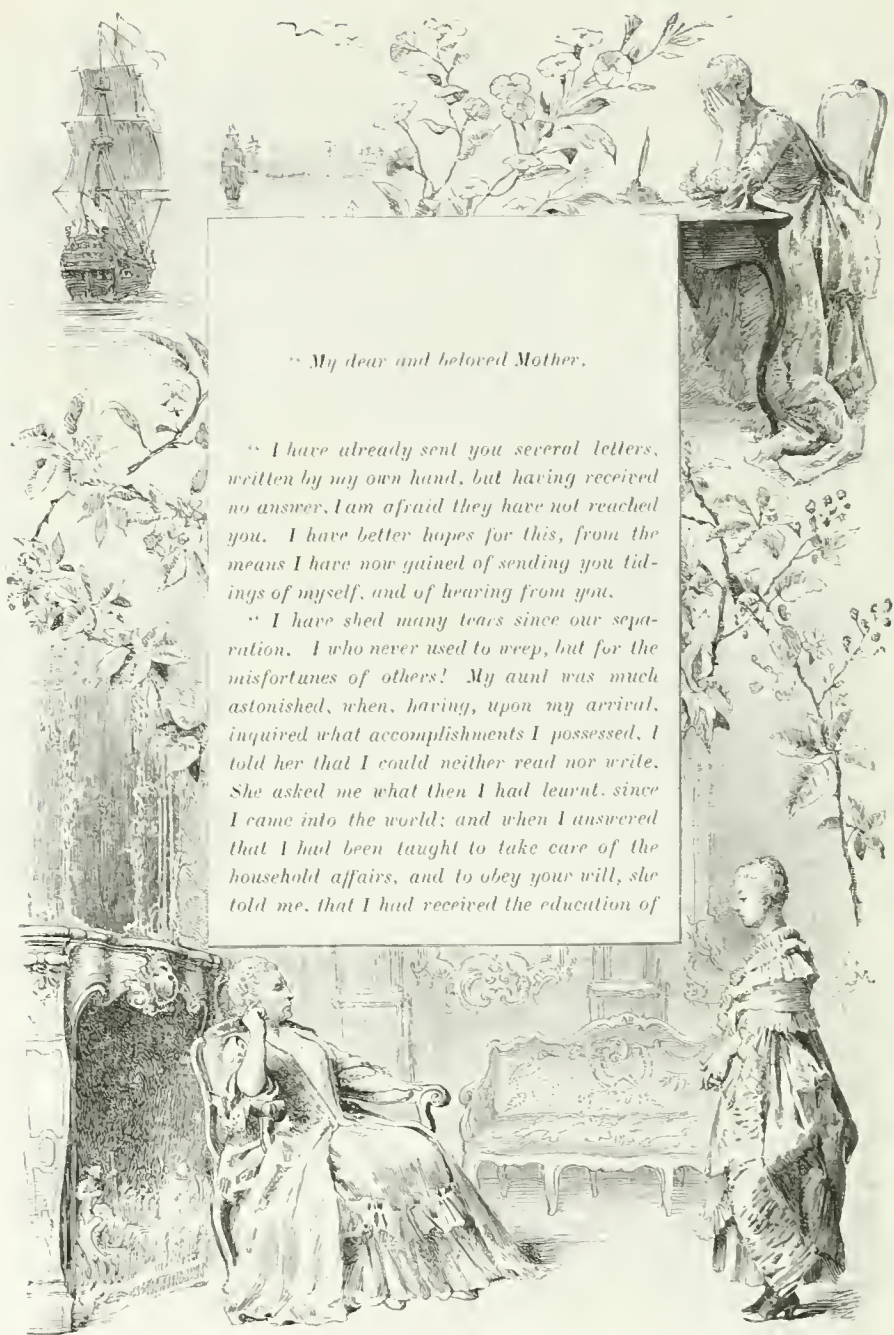 “ My dear and beloved Mother,
“ I have already sent you several letters,
written by my own hand, but having received
no answer, I am afraid they have not reached
you. I have better hopes for this, from the
means I have now gained of sending you tid-
ings of myself, and of hearing from you.
“ I have shed many tears since our sepa-
ration. I who never used to weep, but for the
misfortunes of others! My aunt was much
astonished, when, having, upon my arrival,
inquired what accomplishments I possessed, I
told her that I could neither read nor write.
She asked me what then I had learnt, since
I came into the world; and when I answered
that I had been taught to take care of the
household affairs, and to obey your will, she
told me, that I had received the education of